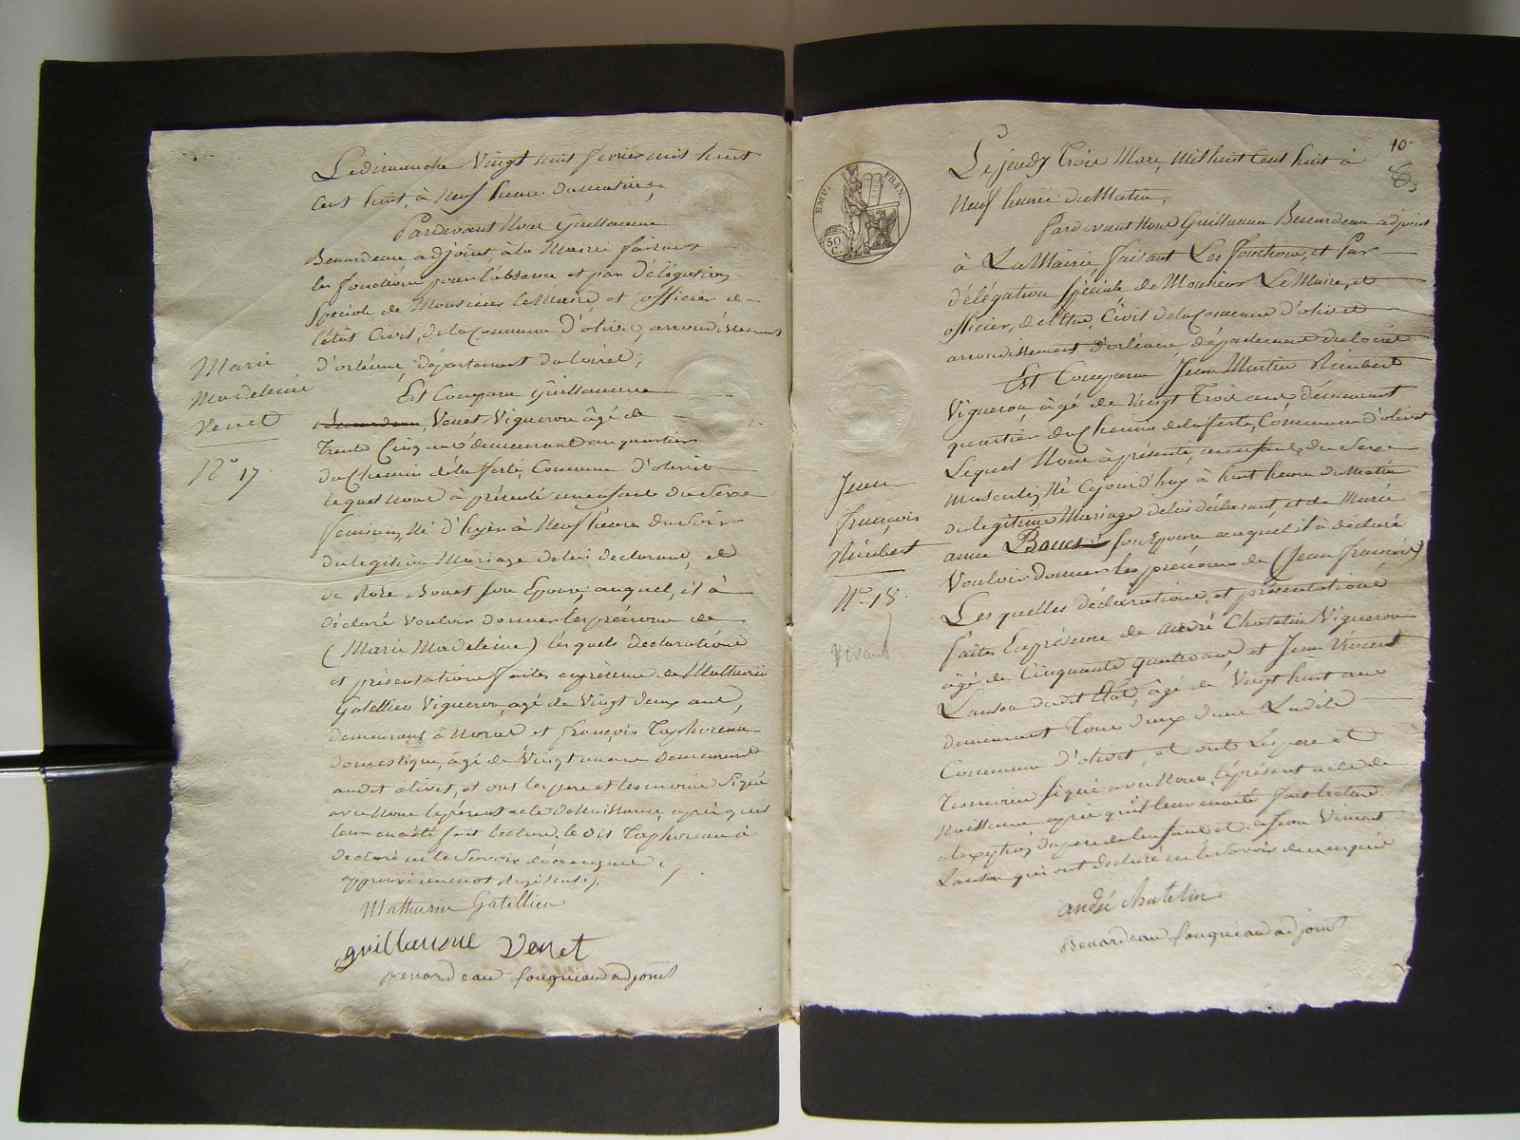 Le dimanche Vingt huit fevrier mil huit
cent huit, à Neuf heure du matin,
Pardevant Nous Guillaume
Benardeau adjoint à la Mairie faisant
les fonctions pour l'absence et par délégation
Spéciale de Monsieur le Maire et officier de
l'état Civil, de la Commune d'olivet, arrondissement
d'orléans, département du loiret,
Est Comparu Guillaume
Venet Vigneron âgé de
Trente Cinq ans demeurant au quartier
du Chemin de la ferté, Commune d'olivet
lequel Nous à présenté un enfant du Sexe
feminin, Né d'hyer à Neuf heure du Soir
du legitime Mariage de lui declarant, et
de Rose Bouet Son Epouse, auquel, il à
déclaré vouloir donner les prénoms de
(Marie Madeleine) lesquels declarations
et présentations faites en présence de Mathurin
Gatellier Vigneron, agé de Vingt deux ans,
demeurant à et françois Taphoreau
domestique, âgé de Vingt demeurant
audit olivet, et ont les pere et temoins Signé
avec Nous le présent acte de Naissance, après qu'il
leur en a été fait lecture, le dit Taphoreau à
declaré ne le Savoir de ce enquis,
Mathurin Gatellier
guillaume Venet
Benardeau fouqueau adjoint
Marie
Madeleine
Venet
N° 17
10
Le jeudy Trois Mars, Mil huit Cent huit à
Neuf heures du Matin,
Pardevant Nous Guillaume Benardeau adjoint
à La Mairie faisant Les fonctions, et Par
délégation Spéciale de Monsieur Le Maire, et
officier, de l'Etat, Civil de la Commune d'olivet
arrondissement d'orléans, département du loiret
Est Comparu Jean Martin Rimbert
Vigneron, âgé de Vingt Trois ans demeurant
quartier du Chemin de la ferté, Commune d'olivet
Lequel Nous à présenté, un enfant du Sexe
Masculin, Né Cejourd'huy à huit heures du Matin
du legitime Mariage de lui déclarant, et de Marie
anne Son Epouse auquel il à déclaré
Vouloir donner les prénoms de (Jean françois)
Les quelles déclarations, et présentations
faites En présence de André Chatelin Vigneron
âgé de Cinquante quatre ans et Jean Vincent
Lanson dudit état, âgé de Vingt huit ans
demeurant Tous deux dans Ladite
Commune d'olivet, et ont Les pere et
Temoins signé avec Nous, le présent acte de
Naissance après qu'il leur en a été fait lecture
à l'exception du pere de l'enfant et de Jean Vincent
Lanson qui ont declaré ne le Savoir de ce enquis
andré chatelin
Benardeau fouqueau adjoint
Jean
françois
Rimbert
N° 18
EMP. FRAN.
50